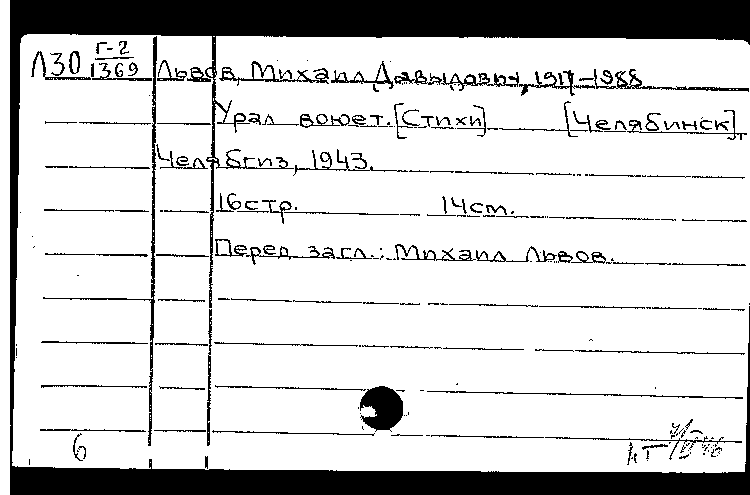 Л30 Г-2/1369 Львов, Михаил Давыдович, 1917-1988
Урал воюет. [Стихи] [Челябинск],
Челябгиз, 1943.
16стр. 14см.
Перед загл.: Михаил Львов.
6